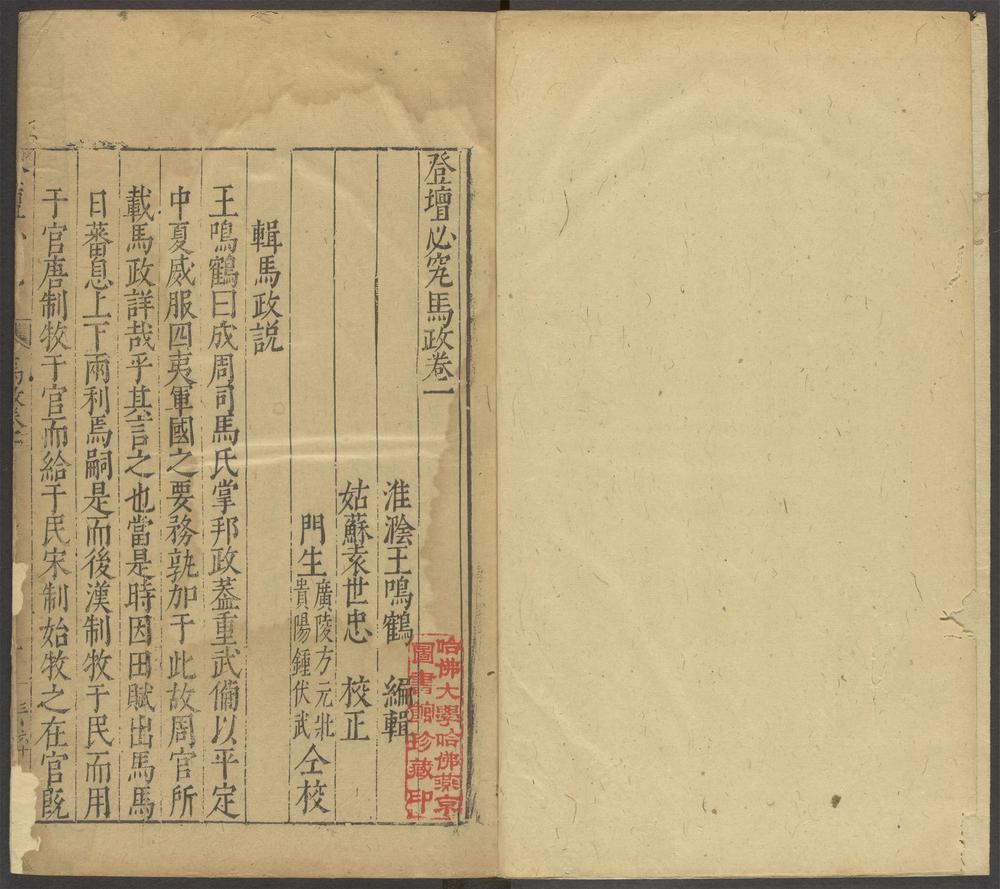 登壇必究馬政卷一
淮滁王鳴鶴 編輯
姑蘇袁世忠 校正
門生廣陵方元壯
貴陽鍾伏武仝校
輯馬政說
王鳴鶴曰成周司馬氏掌邦政蓋重武備以平定
中夏威服四夷軍國之要務孰加于此故周官所
載馬政詳哉乎其言之也當是時因田賦出馬馬
日蕃息上下兩利焉嗣是而後漢制牧于民而用
于官唐制牧于官而給于民宋制始牧之在官旣
馬政卷一
哈佛大學哈佛燕京
圖書館珍藏印